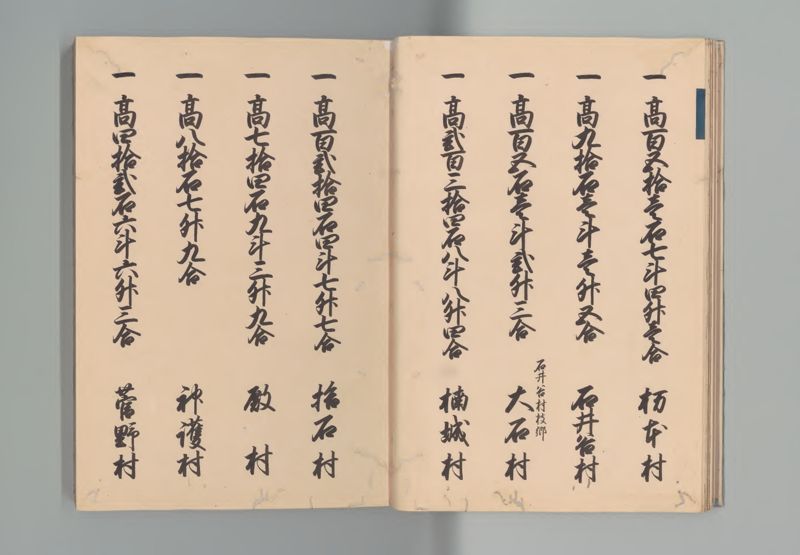 一 高百五拾壱石七斗四升壱合 杤本村
一 高九拾石壱斗壱升五合 石井谷村
石井谷村枝郷
一 高百五石壱斗弐升三合 大石村
一 高弐百三拾四石八斗八升四合 楠城村
一 高百弐拾四石四斗七升七合 拾石村
一 高七拾四石九斗三升九合 殿村
一 高八拾石七升九合 神護村
一 高四拾弐石六斗六升三合 菅野村